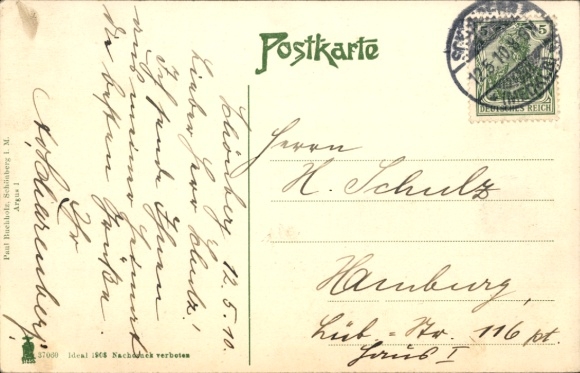 Postkarte
5 5
DEUTSCHES REICH
12.5.10.8
(MECKLB)
Schönberg 12.5.10.
Lieber Herr Schulz!
Ich sende Ihnen
aus meiner Heimat
die besten Grüße.
Ihr
Herrn
H. Schulz
Hamburg,
Lüb = Str. 116 pt.
Haus I
Paul Buchholz, Schönberg i. M.
Argus I
37060 Ideal 1905 Nachdruck verboten